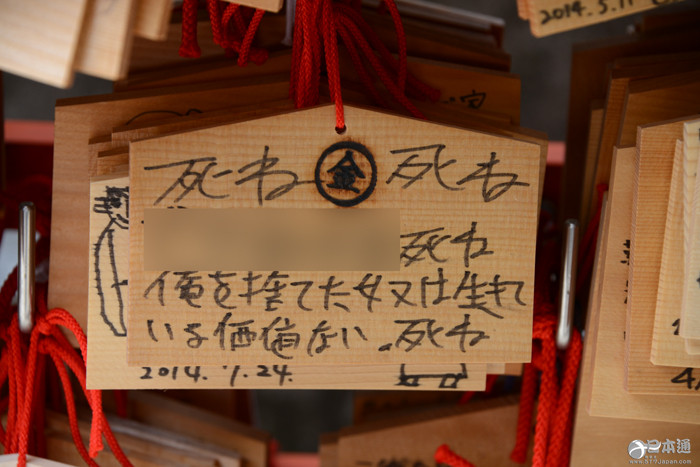 2014.5.11
死ね 金 死ね
死ね
俺を捨てた奴は生きて
いる価値ない。死ね
2014.7.24.
日本通
www.517japan.com